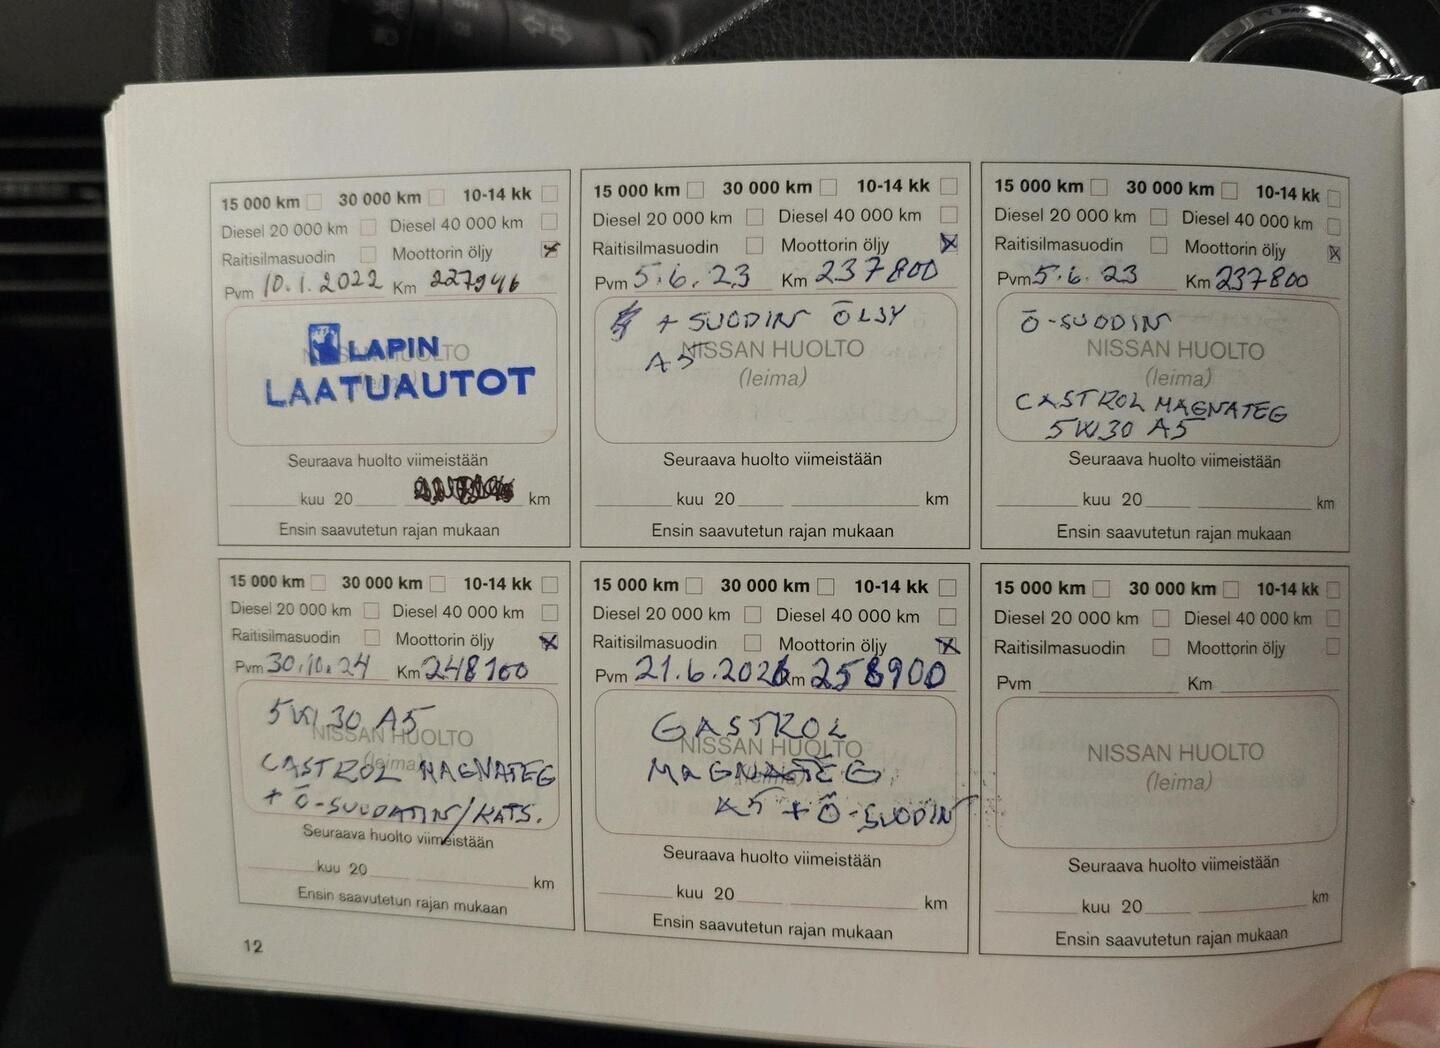 15 000 km 30 000 km 10-14 kk
Diesel 20 000 km Diesel 40 000 km
Raitisilmasuodin Moottorin öljy
Pvm 10.1.2022 Km 227946
NISSAN HUOLTO
(leima)
LAPIN
LAATUAUTOT
Seuraava huolto viimeistään
kuu 20 km
Ensin saavutetun rajan mukaan
15 000 km 30 000 km 10-14 kk
Diesel 20 000 km Diesel 40 000 km
Raitisilmasuodin Moottorin öljy
Pvm 5.6.23 Km 237800
+ SUODIN ÖLJY
A5
NISSAN HUOLTO
(leima)
Seuraava huolto viimeistään
kuu 20 km
Ensin saavutetun rajan mukaan
15 000 km 30 000 km 10-14 kk
Diesel 20 000 km Diesel 40 000 km
Raitisilmasuodin Moottorin öljy
Pvm 5.6.23 Km 237800
Ö-SUODIN
NISSAN HUOLTO
(leima)
CASTROL MAGNATEG
5W30 A5
Seuraava huolto viimeistään
kuu 20 km
Ensin saavutetun rajan mukaan
15 000 km 30 000 km 10-14 kk
Diesel 20 000 km Diesel 40 000 km
Raitisilmasuodin Moottorin öljy
Pvm 30.10.24 Km 248100
5W30 A5
NISSAN HUOLTO
(leima)
CASTROL MAGNATEG
+ Ö-SUODATIN/KATS.
Seuraava huolto viimeistään
kuu 20 km
Ensin saavutetun rajan mukaan
15 000 km 30 000 km 10-14 kk
Diesel 20 000 km Diesel 40 000 km
Raitisilmasuodin Moottorin öljy
Pvm 21.6.2026 Km 258900
GASTROL
NISSAN HUOLTO
(leima)
MAGNATEG
A5 + Ö-SUODIN
Seuraava huolto viimeistään
kuu 20 km
Ensin saavutetun rajan mukaan
15 000 km 30 000 km 10-14 kk
Diesel 20 000 km Diesel 40 000 km
Raitisilmasuodin Moottorin öljy
Pvm Km
NISSAN HUOLTO
(leima)
Seuraava huolto viimeistään
kuu 20 km
Ensin saavutetun rajan mukaan
12